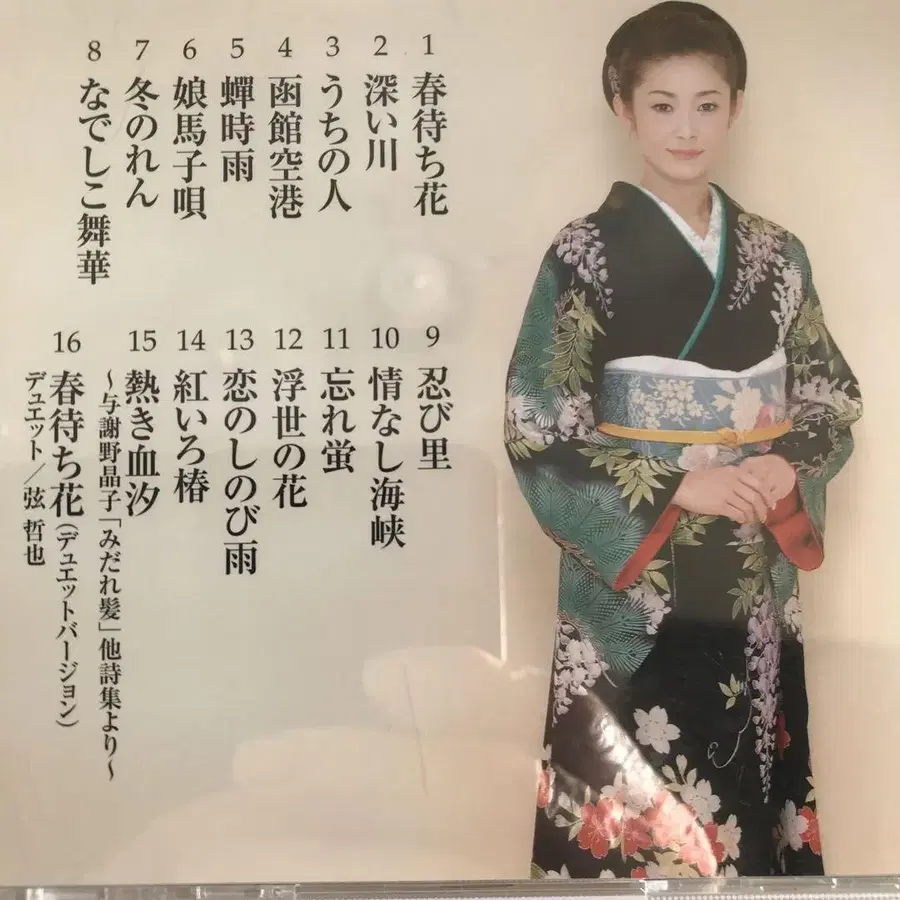 1 春待ち花
2 深い川
3 うちの人
4 函館空港
5 蟬時雨
6 娘馬子唄
7 冬のれん
8 なでしこ舞華
9 忍び里
10 情なし海峡
11 忘れ蛍
12 浮世の花
13 恋のしのび雨
14 紅いろ椿
15 熱き血汐
～与謝野晶子「みだれ髪」他詩集より～
16 春待ち花（デュエットバージョン）
デュエット／弦 哲也